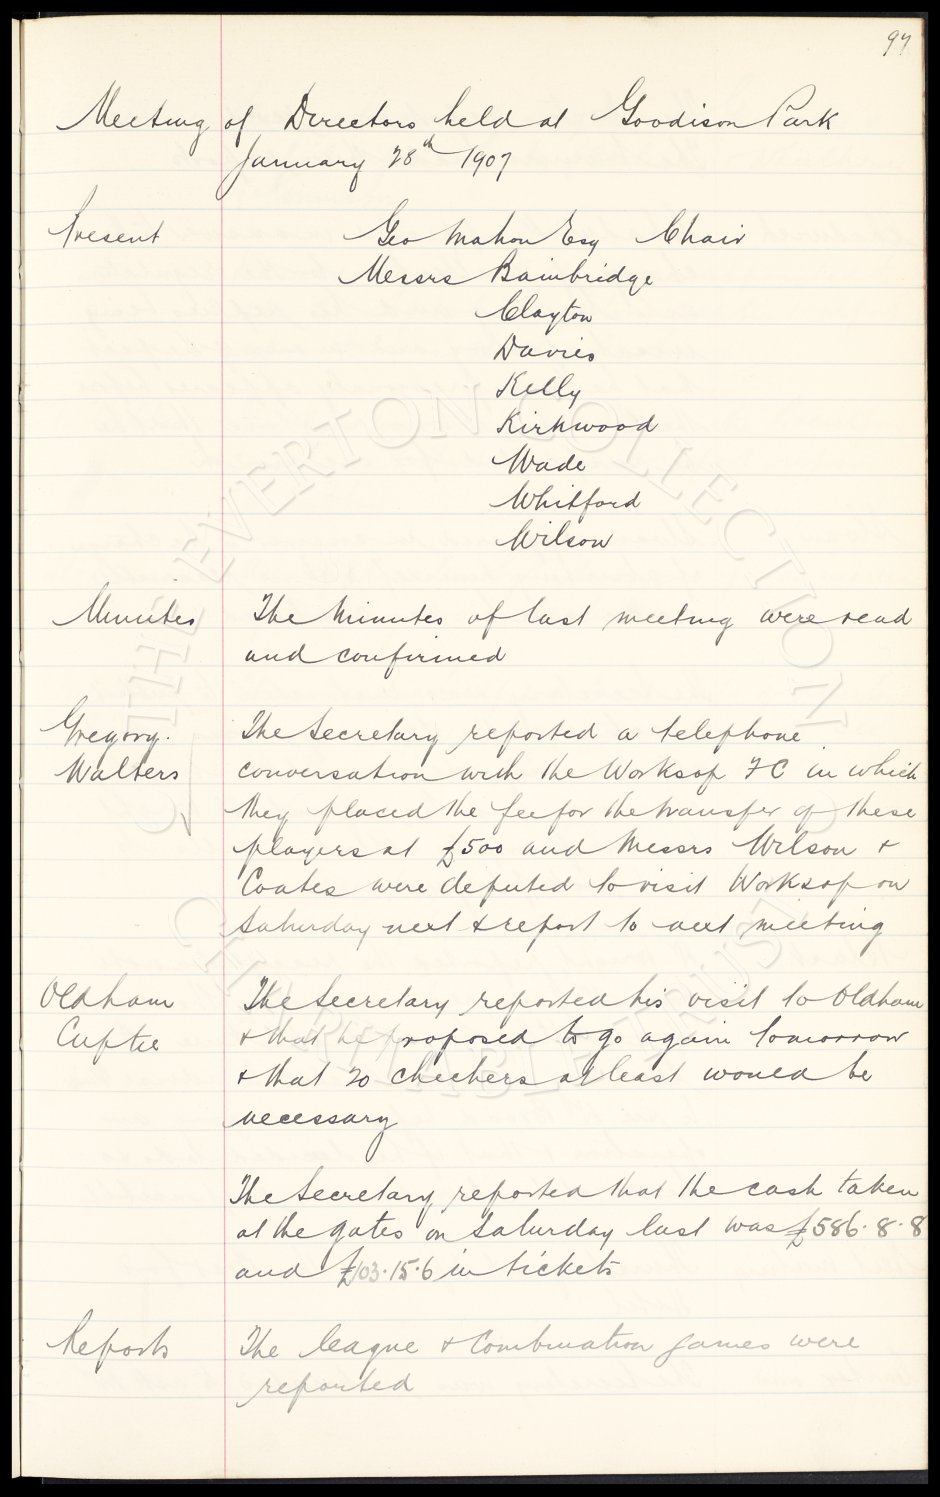 97
Meeting of Directors held at Goodison Park
January 28th 1907
Present Geo Mahon Esq Chair
Messrs Bainbridge
Clayton
Davies
Kelly
Kirkwood
Wade
Whitford
Wilson
Minutes The Minutes of last meeting were read
and confirmed
Gregory. The Secretary reported a telephone
Walters conversation with the Worksop FC in which
they placed the fee for the transfer of these
players at £500 and Messrs Wilson &
Coates were deputed to visit Worksop on
Saturday next & report to next meeting
Oldham The Secretary reported his visit to Oldham
Cuptie & that he proposed to go again tomorrow
& that 20 checkers at least would be
necessary
The Secretary reported that the cash taken
at the gates on Saturday last was £586.8.8
and £103.15.6 in tickets
Reports The League & Combination games were
reported
THE EVERTON COLLECTION
CHARITABLE TRUST